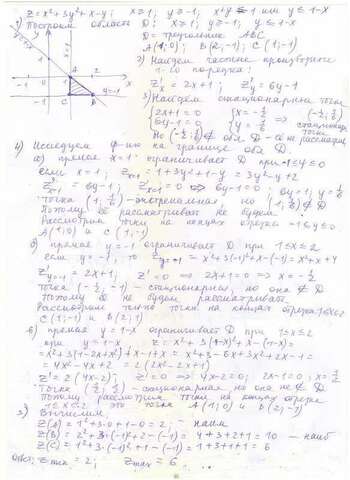 z=x²+3y²+x-y; x≥1, y≥-1, x+y≤1 или y≤1-x
1) Построим область D: x≥1; y≥-1; y≤1-x
D - треугольник ABC
A(1;0); B(2;-1); C(1;-1)
2) Найдем частные производные
1-го порядка:
z'x = 2x+1; z'y = 6y-1
3) Найдем стационарные точки
{2x+1=0 {x=-1/2 (-1/2; 1/6)
{6y-1=0 {y=1/6 стационарн. точка
Но (-1/2; 1/6) ∉ обл. D
4) Исследуем ф-ию на границе обл. D.
а) прямая x=1 ограничивает D при -1≤y≤0
если x=1, z x=1 = 1+3y²+1-y = 3y²-y+2
z' x=1 = 6y-1; z' x=1 = 0 => 6y-1=0; 6y=1; y=1/6
Точка (1; 1/6) - стационарная, но (1; 1/6) ∉ D
Поэтому ее рассматривать не будем.
Рассмотрим точки на концах отрезка -1≤y≤0
A(1;0) и C(1;-1)
б) прямая y=-1 ограничивает D при 1≤x≤2
если y=-1, то z y=-1 = x²+3(-1)²+x-(-1) = x²+x+4
z' y=-1 = 2x+1; z'=0 => 2x+1=0 => x=-1/2
Точка (-1/2; -1) - стационарная, но она ∉ D
Поэтому D не будем рассматривать.
Рассмотрим только точки на концах отрезка 1≤x≤2
C(1;-1) и B(2;-1)
в) прямая y=1-x ограничивает D при 1≤x≤2
при y=1-x z=x²+3(1-x)²+x-(1-x)=
=x²+3(1-2x+x²)+x-1+x = x²+3-6x+3x²+2x-1=
=4x²-4x+2 = 2(2x²-2x+1)
z'=2(4x-2); z'=0 => 4x-2=0; 2x-1=0; x=1/2
Точка (1/2; 1/2) - стационарная но она не ∉ D.
Поэтому рассмотрим точки на концах отрезка
1≤x≤2 это точки A(1;0) и B(2;-1)
5) Вычислим
z(A)=1²+3·0+1-0=2; - наим
z(B)=2²+3·(-1)²+2-(-1)=4+3+2+1=10 - наиб
z(C)=1²+3·(-1)²+1-(-1)=1+3+1+1=6
Ответ: z min = 2; z max = 6